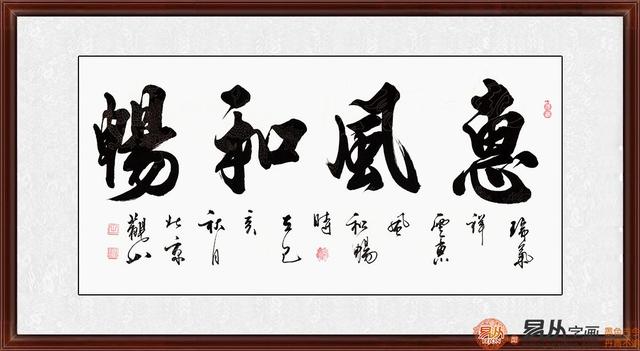 惠風和暢
瑞氣
祥
雲惠
風
和暢
時
在己
亥
秋月
北京
觀山
易从字画
丹青不渝